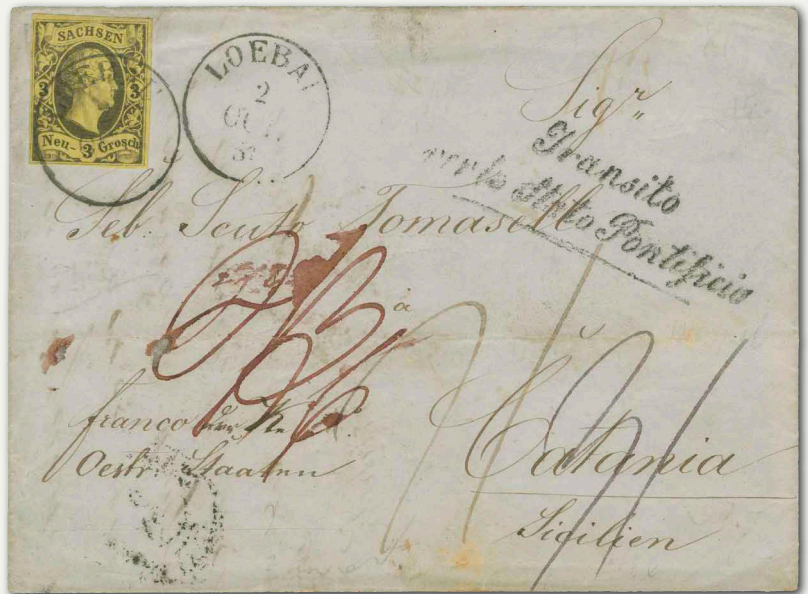 SACHSEN
3 3
Neu- 3 Grosch
LOEBAU
2
Sigr
Transito
per lo Stato Pontificio
Seb. Scuto Tomaselli
à
franco
Oestr. Staaten
Catania
Sicilien